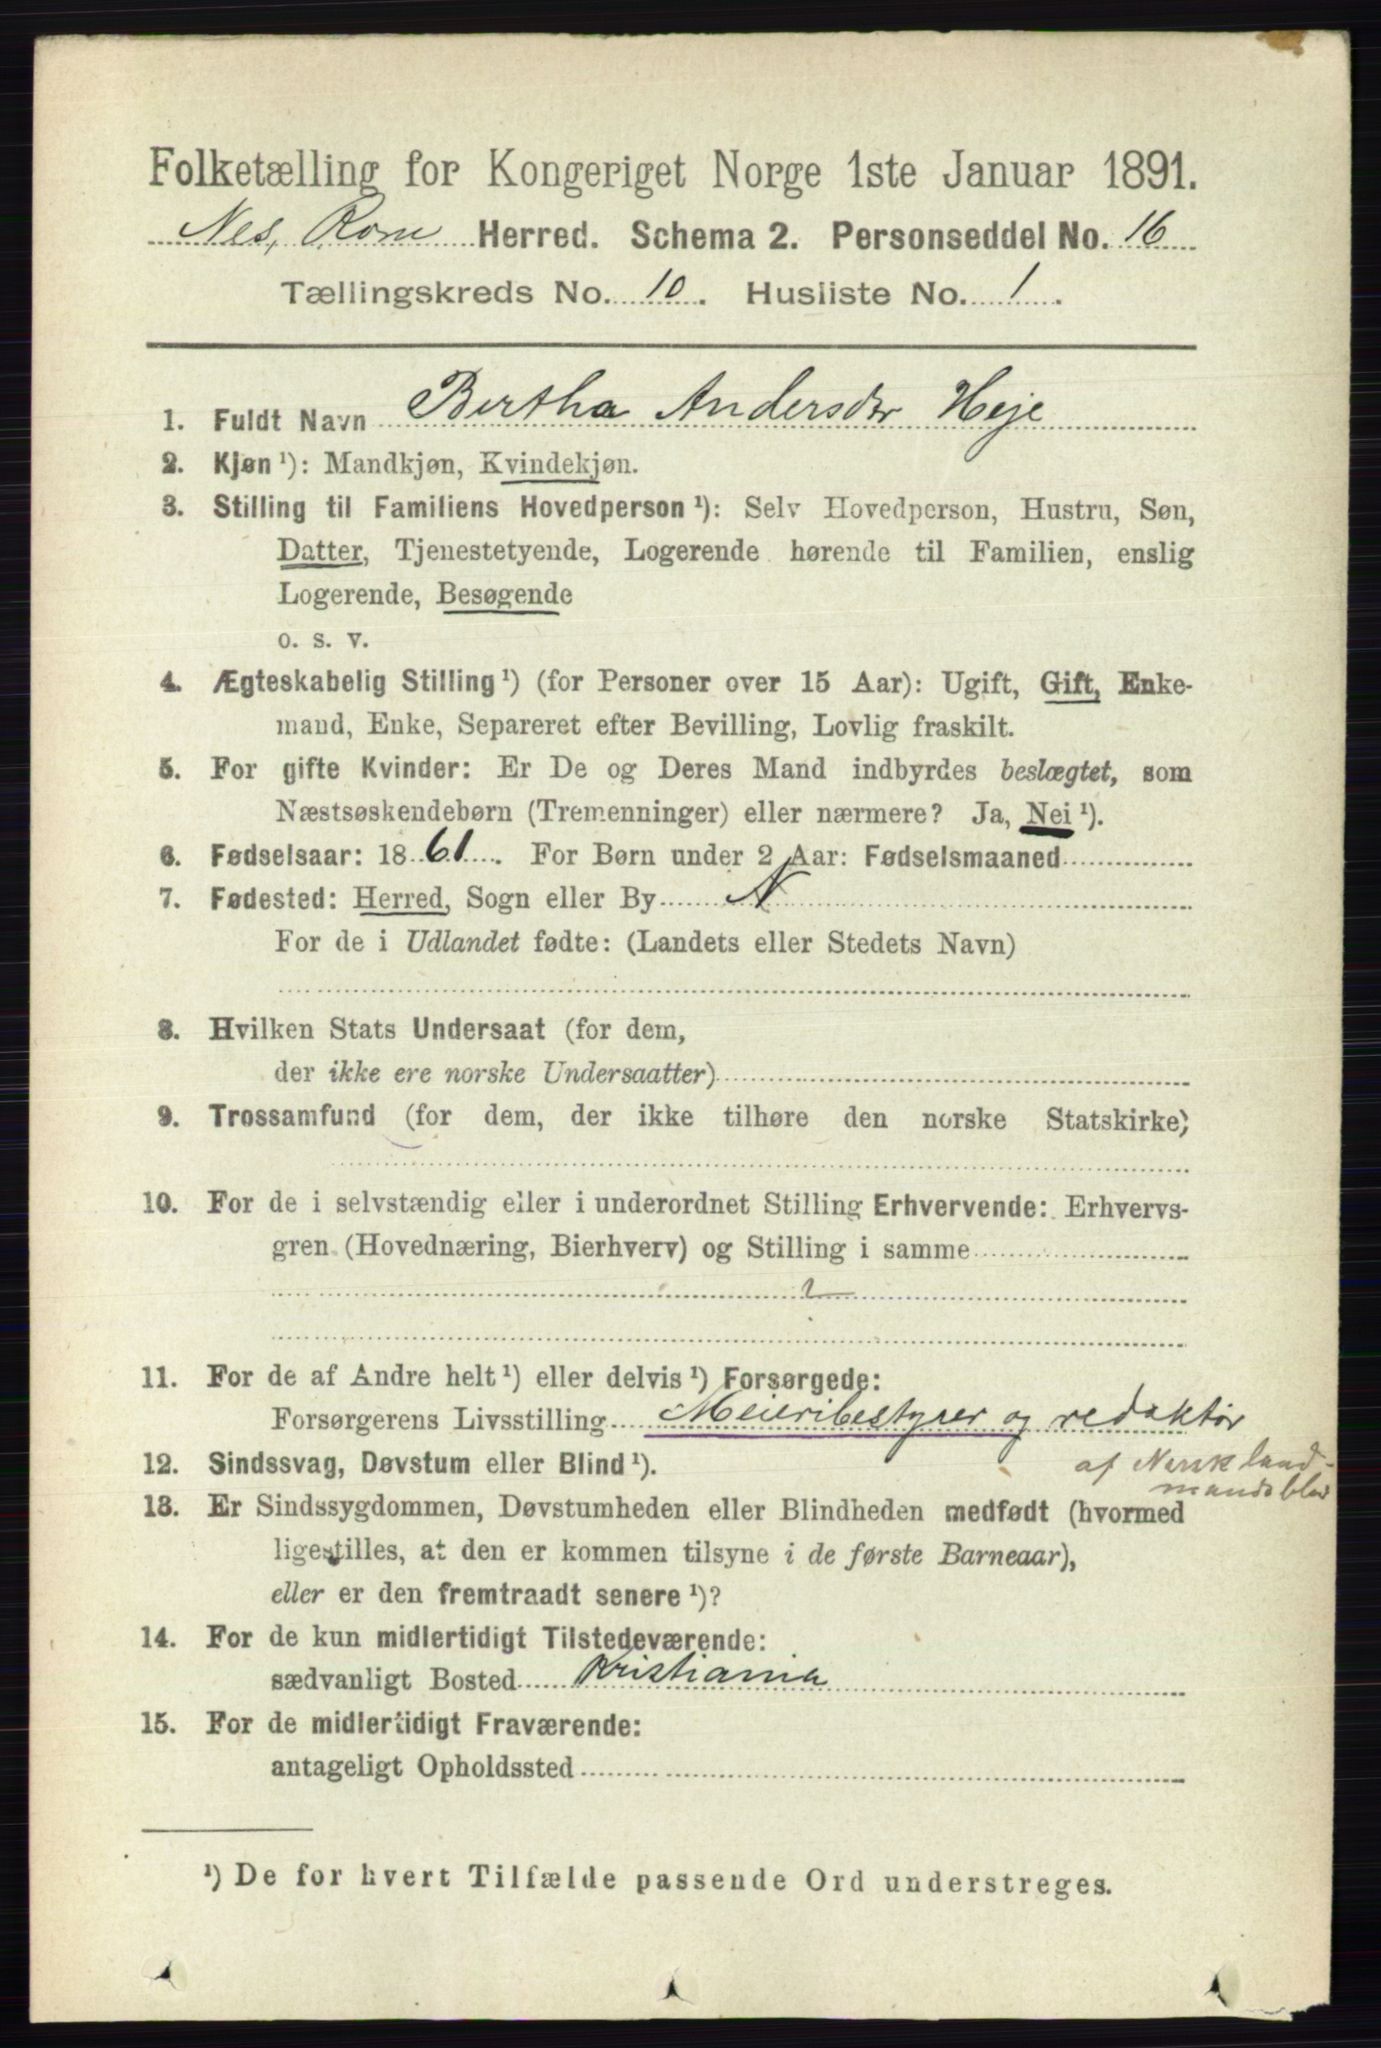 Folketælling for Kongeriget Norge 1ste Januar 1891.
Nes, Rom Herred. Schema 2. Personseddel No. 16
Tællingskreds No. 10. Husliste No. 1.
1. Fuldt Navn Bertha Andersdtr Heje
2. Kjøn ¹): Mandkjøn, Kvindekjøn.
3. Stilling til Familiens Hovedperson ¹): Selv Hovedperson, Hustru, Søn,
Datter, Tjenestetyende, Logerende hørende til Familien, enslig
Logerende, Besøgende
o. s. v.
4. Ægteskabelig Stilling ¹) (for Personer over 15 Aar): Ugift, Gift, Enke-
mand, Enke, Separeret efter Bevilling, Lovlig fraskilt.
5. For gifte Kvinder: Er De og Deres Mand indbyrdes beslægtet, som
Næstsøskendebørn (Tremenninger) eller nærmere? Ja, Nei ¹).
6. Fødselsaar: 1861. For Børn under 2 Aar: Fødselsmaaned
7. Fødested: Herred, Sogn eller By N
For de i Udlandet fødte: (Landets eller Stedets Navn)
8. Hvilken Stats Undersaat (for dem,
der ikke ere norske Undersaatter)
9. Trossamfund (for dem, der ikke tilhøre den norske Statskirke)
10. For de i selvstændig eller i underordnet Stilling Erhvervende: Erhvervs-
gren (Hovednæring, Bierhverv) og Stilling i samme
11. For de af Andre helt ¹) eller delvis ¹) Forsørgede:
Forsørgerens Livsstilling Meieribestyrer og redaktør
af Norsk land-
mandsblad
12. Sindssvag, Døvstum eller Blind ¹).
13. Er Sindssygdommen, Døvstumheden eller Blindheden medfødt (hvormed
ligestilles, at den er kommen tilsyne i de første Barneaar),
eller er den fremtraadt senere ¹)?
14. For de kun midlertidigt Tilstedeværende:
sædvanligt Bosted Kristiania
15. For de midlertidigt Fraværende:
antageligt Opholdssted
¹) De for hvert Tilfælde passende Ord understreges.